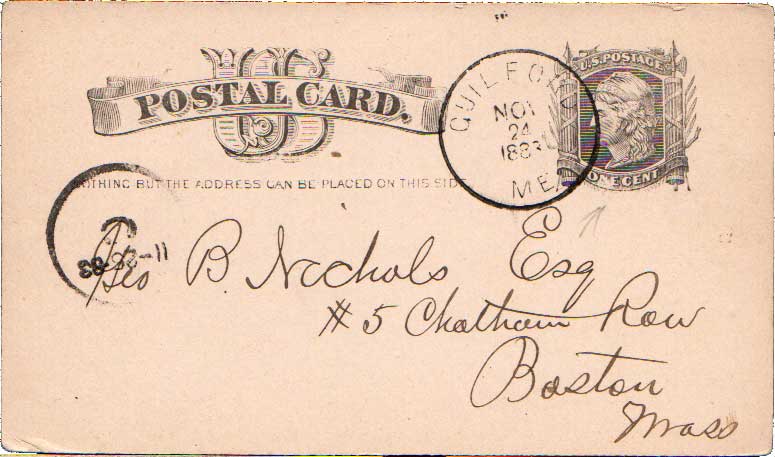 US
POSTAL CARD.
U.S. POSTAGE
ONE CENT
GUILFORD
NOV
24
1883
ME.
NOTHING BUT THE ADDRESS CAN BE PLACED ON THIS SIDE
Geo B. Nichols Esq
# 5 Chatham Row
Boston
Mass